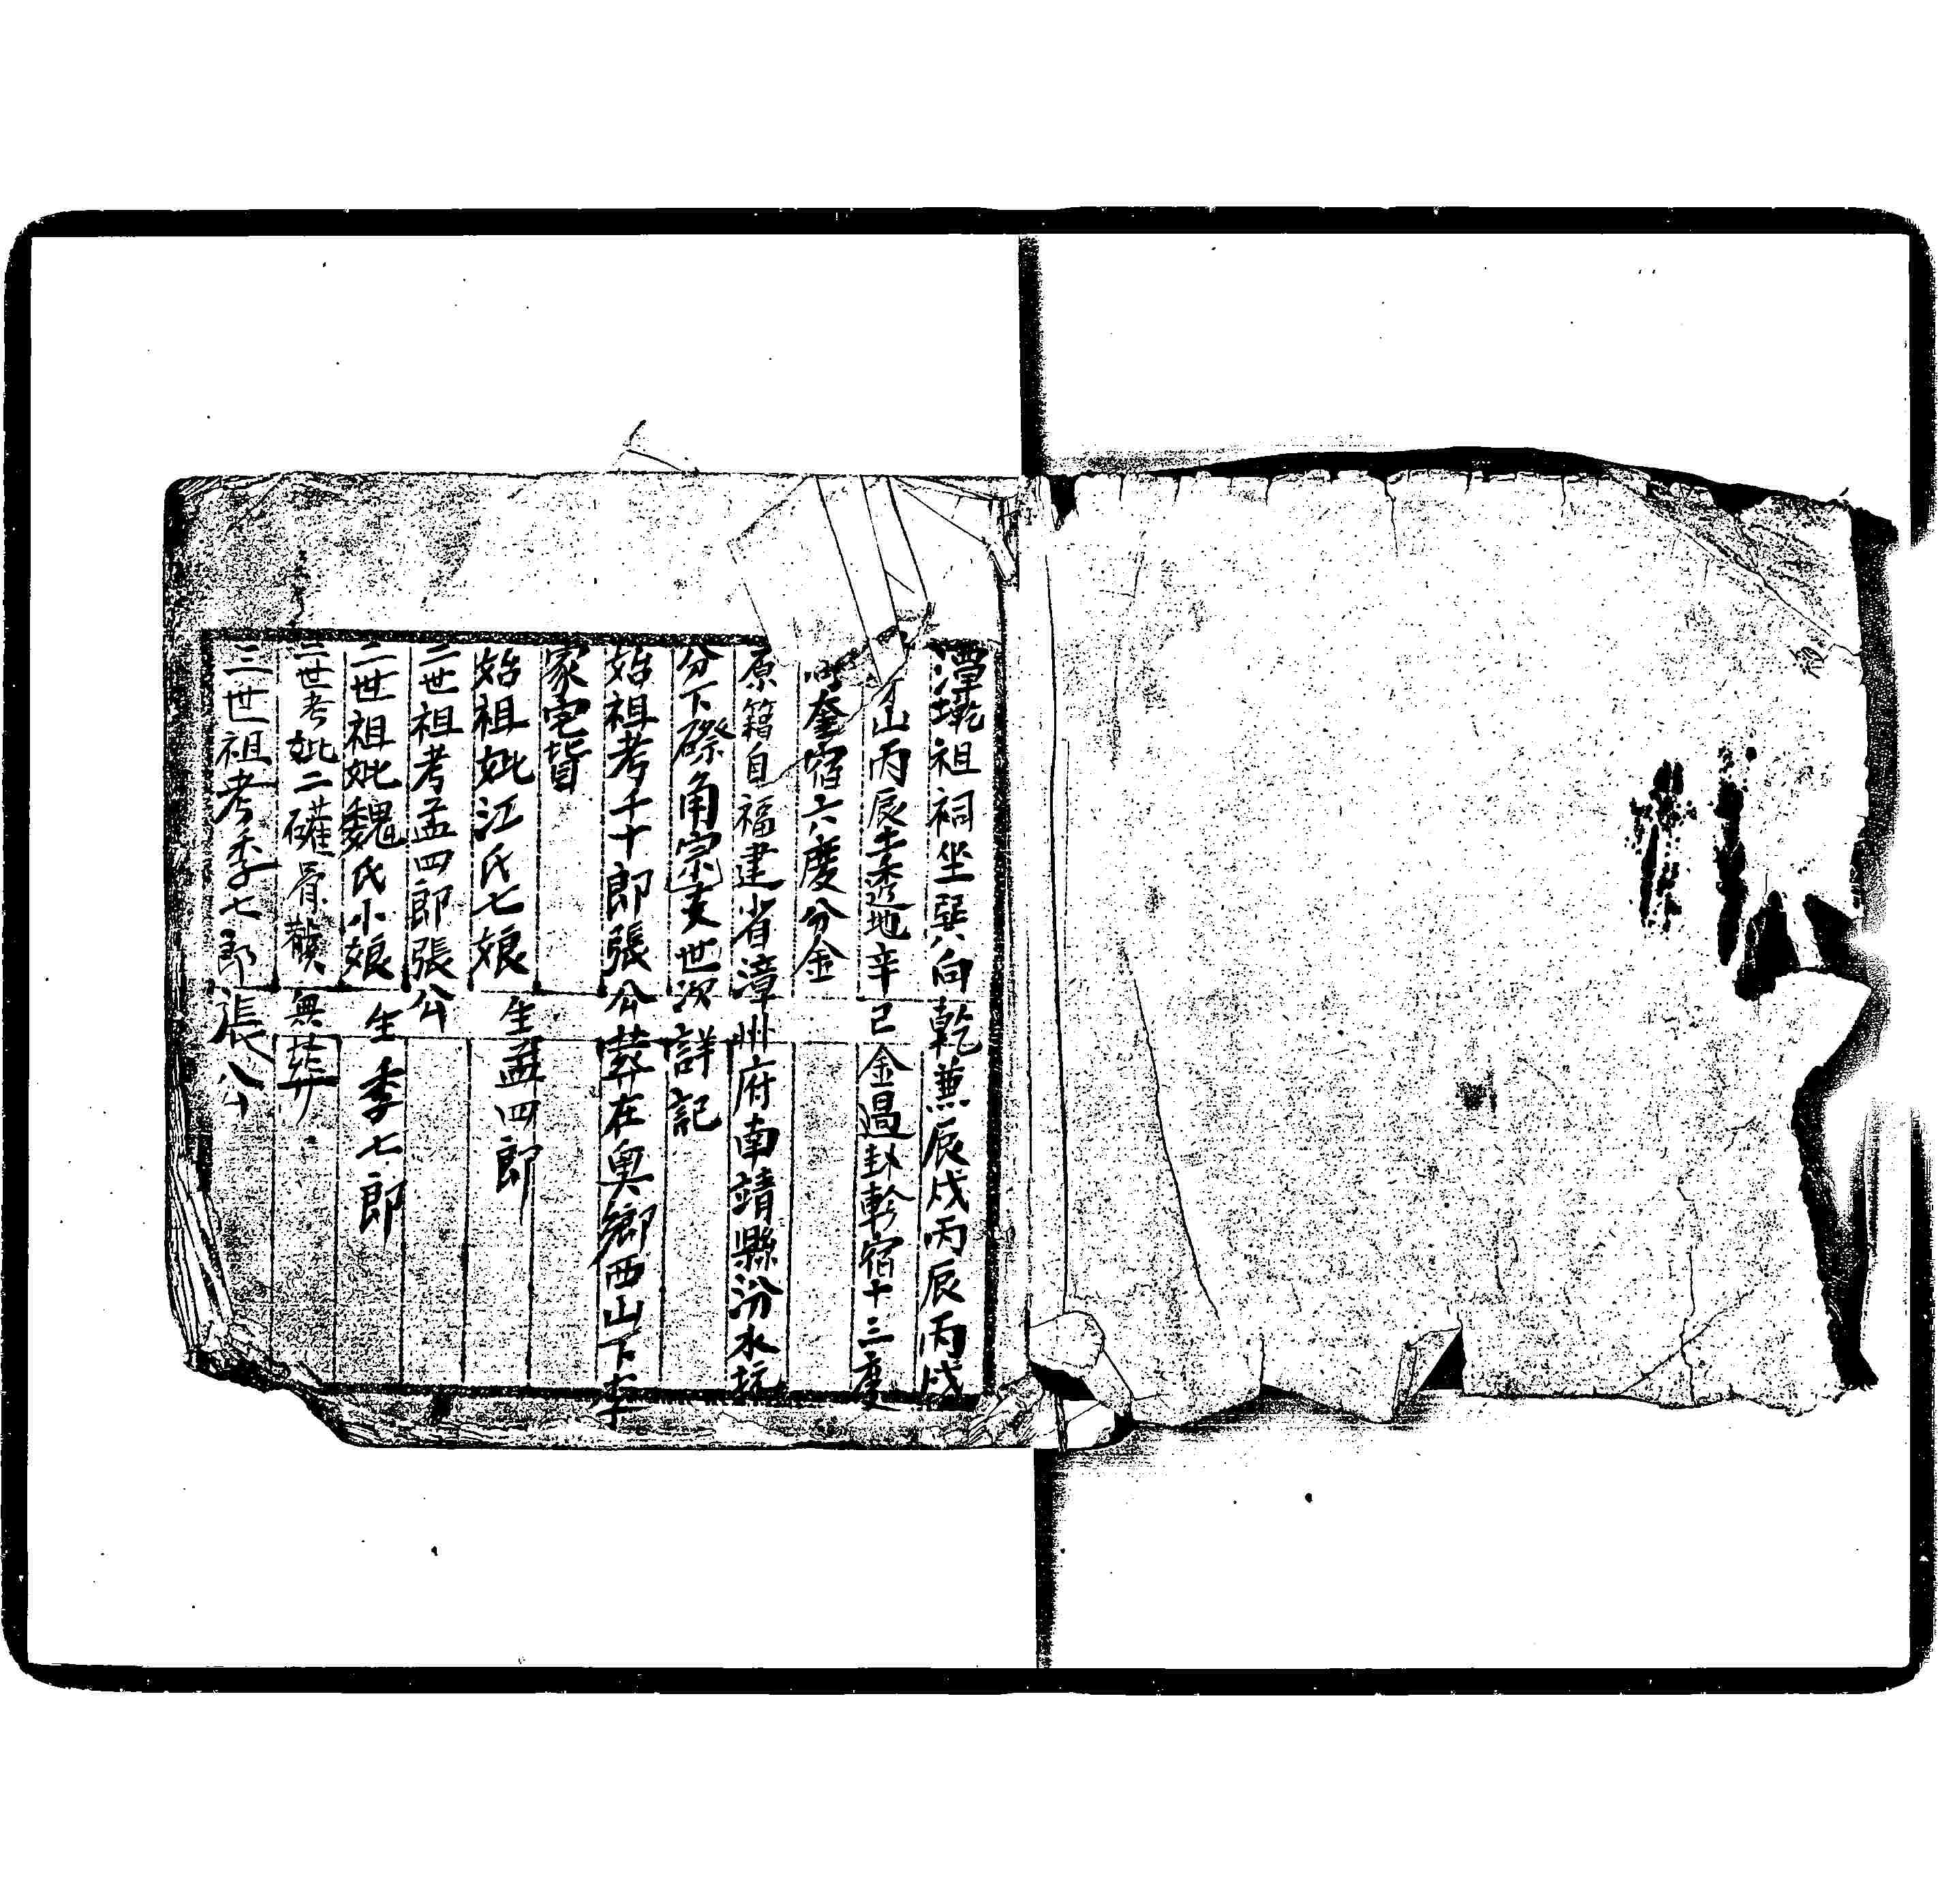 潭墘祖祠坐巽向乾兼辰戌丙辰丙戌
山丙辰土透地辛巳金過卦軫宿十三度
奎宿六度分金
原籍自福建省漳州府南靖縣汾水坑
分下磜角宗支世次詳記
始祖考千十郎張公葬在奧鄉西山下李
家宅背
始祖妣江氏七娘 生孟四郎
二世祖考孟四郎張公
二世祖妣魏氏小娘 生季七郎
二世考妣二礶骨骸無葬
三世祖考季七郎張公